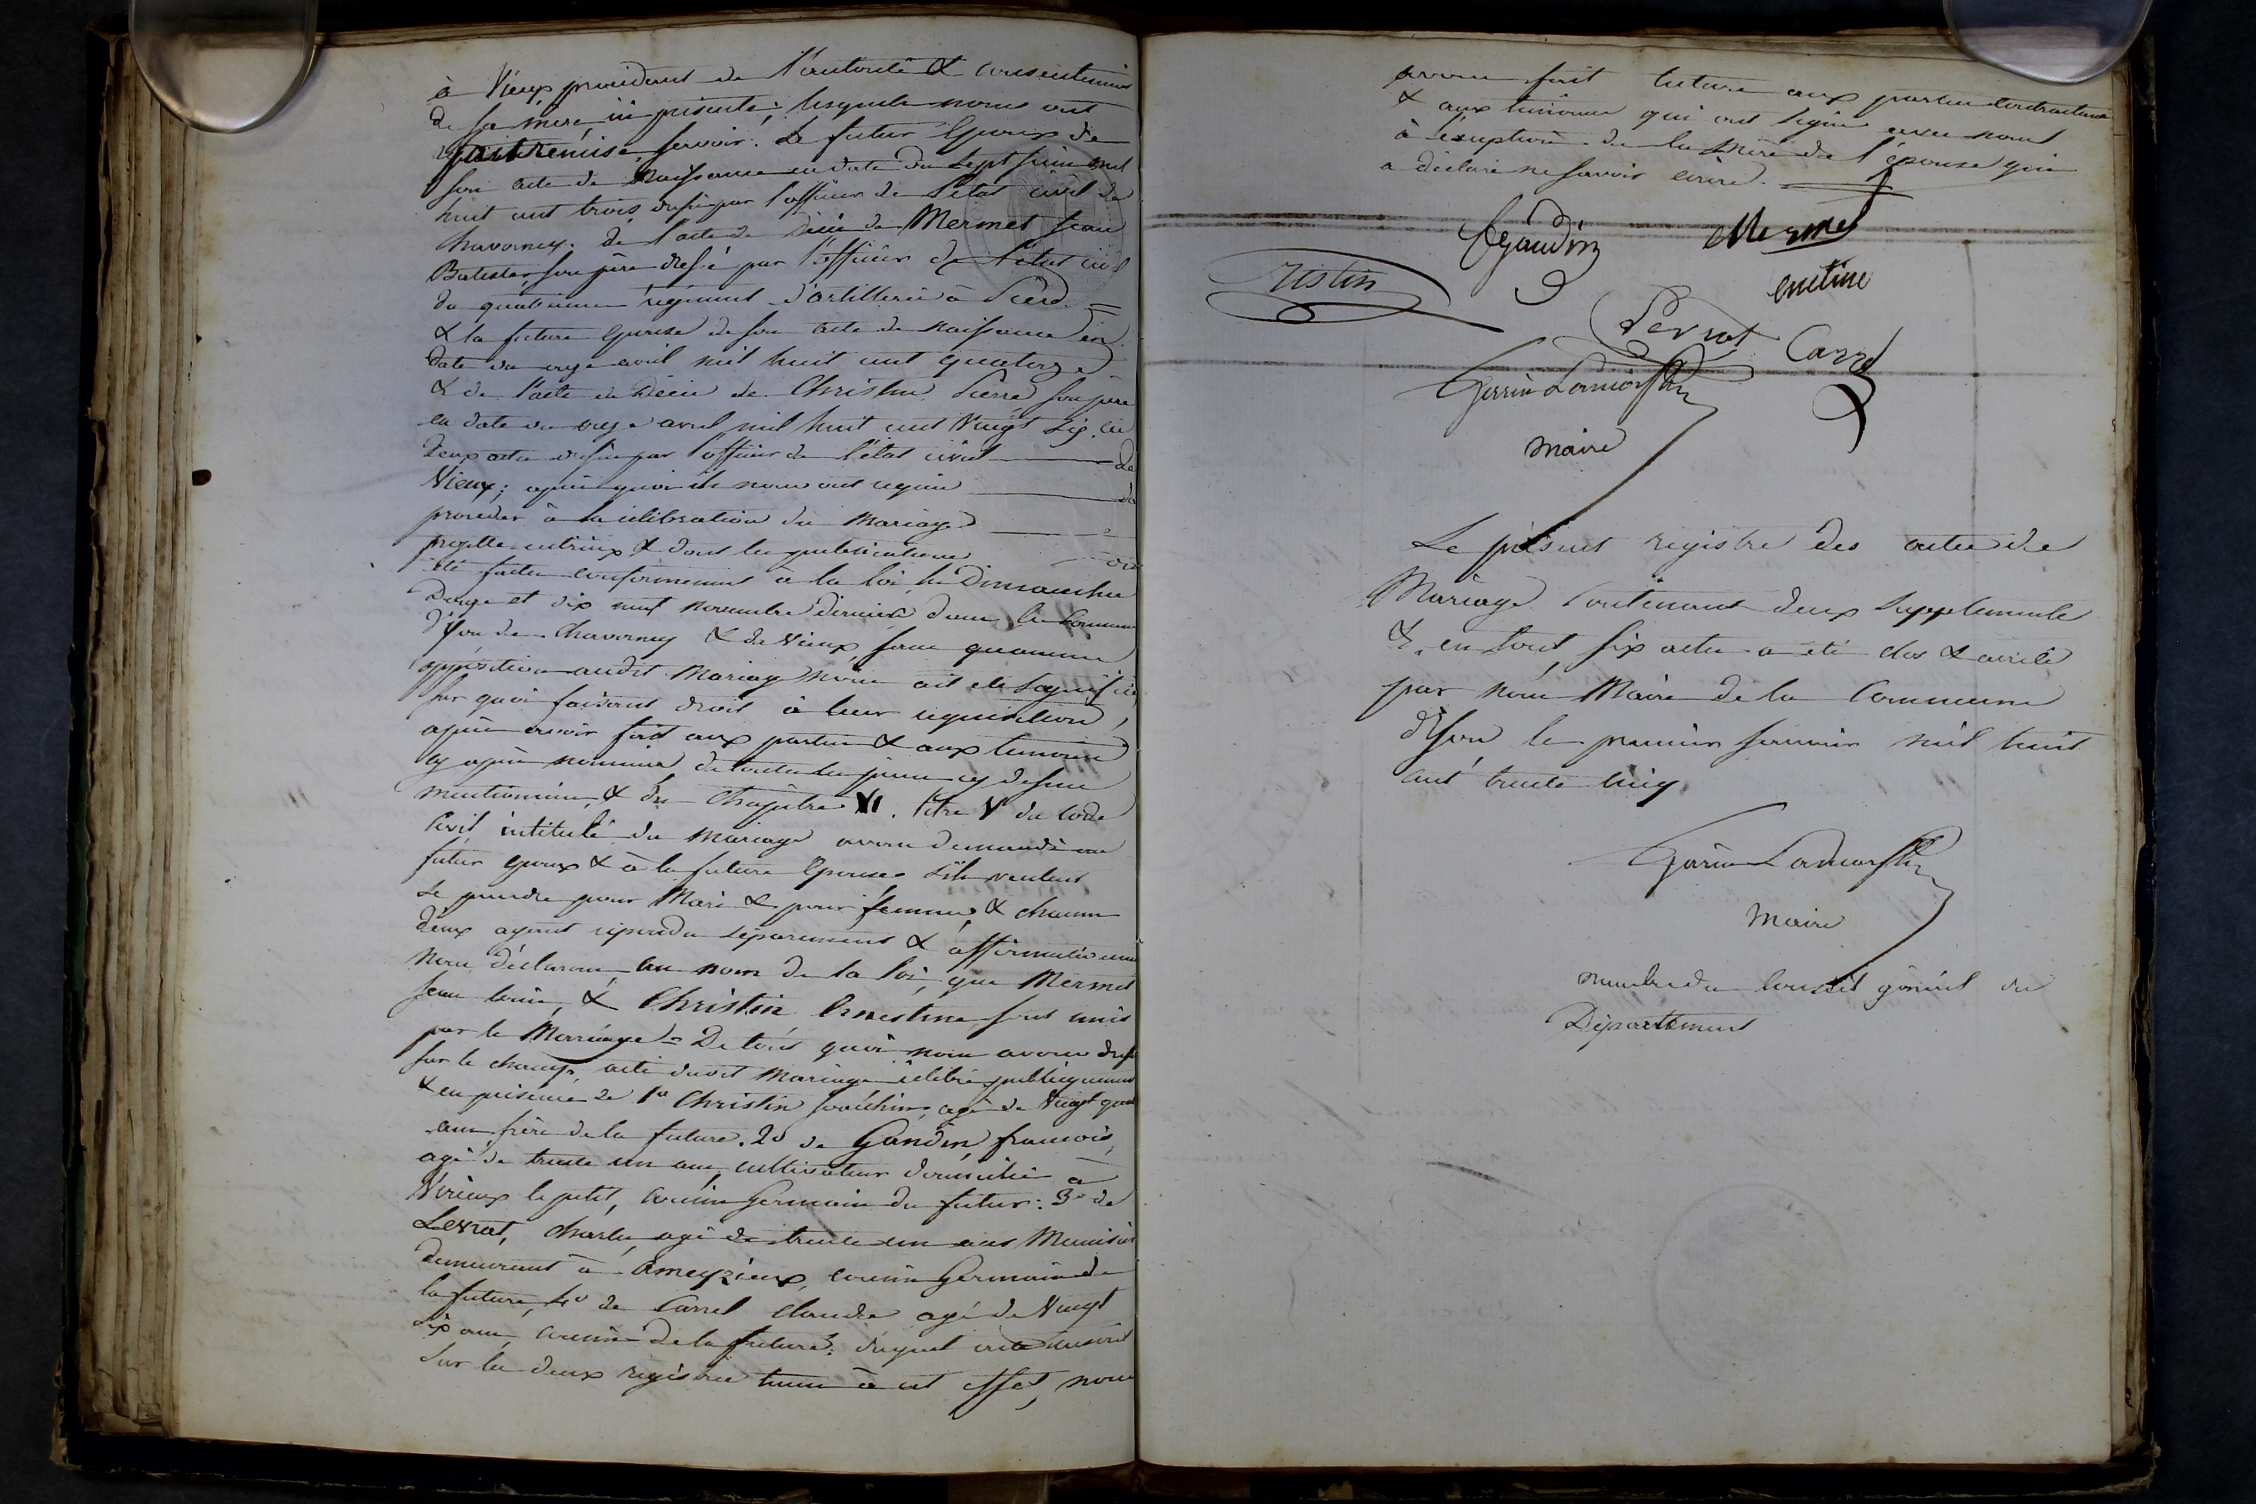 à Vieux procédant de l'autorité & consentement
de sa mère, ici présente; lesquels nous ont
fait remise, savoir: Le futur Epoux de
son acte de Naissance en date du sept juin mil
huit cent trois dressé par l'officier de l'état civil de
Chavorney. de l'acte de décès de Mermet Jean
Batiste, son père dressé par l'officier de l'état civil
du quatrieme régiment d'artillerie à
& la future Epouse de son acte de naissance en
date du onze avril mil huit cent quatorze
& de l'acte de Décès de Christin Pierre son père
en date du onze avril mil huit cent Vingt six. ces
deux actes dressés par l'officier de l'état civil de
Vieux; après quoi ils nous ont requis de
proceder à la célébration du Mariage
projetté entr'eux & dont les publications ont
été faites conformément à la loi, les Dimanches
Douze et dix neuf novembre dernier dans les Communes
d'Yon de Chavorney & de Vieux, sans qu'aucune
opposition audit Mariage Nous ait été Signifiée,
Sur quoi faisant droit à leur requisition,
après avoir fait aux parties & aux temoins
cy après nommés de toutes les pièces cy dessus
mentionnées, & du Chapitre VI. titre V du Code
Civil intitulé du Mariage avons demandé au
futur Epoux & à la future Epouse s'ils veulent
se prendre pour Mari & pour femme, & chacun
d'eux ayant répondu séparément & affirmativement
Nous déclarons, au nom de la loi, que Mermet
Jean Louis, & Christin Ernestine sont unis
par le Mariage = De tout quoi nous avons dressé
sur le champ, acte dudit Mariage célébré publiquement
& en présence de 1º Christin Joachim, agé de Vingt quatre
ans frère de la future. 2º de Gandin, francois,
agé de trente un ans, cultivateur domicilié à
Virieux le petit, cousin Germain du futur: 3º de
Levrat, Charles, agé de trente un ans Menuisier
demeurant à Ameyzieux, cousin Germain de
la future, 4º de Carrel Claude agé de Vingt
Six ans, cousin de la future: duquel acte inscrit
Sur les deux registres tenus à cet effet, nous
avons fait lecture aux parties Contractantes
& aux temoins qui ont signé avec nous
à l'exeption de la Mère de l'épouse qui
a déclaré ne savoir écrire.
Gandin Mermet
ristin
Levrat Carrel
maire
Le présent registre des actes de
Mariage Contenant deux Supplements
& en tout, six actes a été clos & arrêté
par nous Maire de la Commune
d'Yon le premier janvier mil huit
cent trente cinq
Maire
membre du Conseil général du
Département